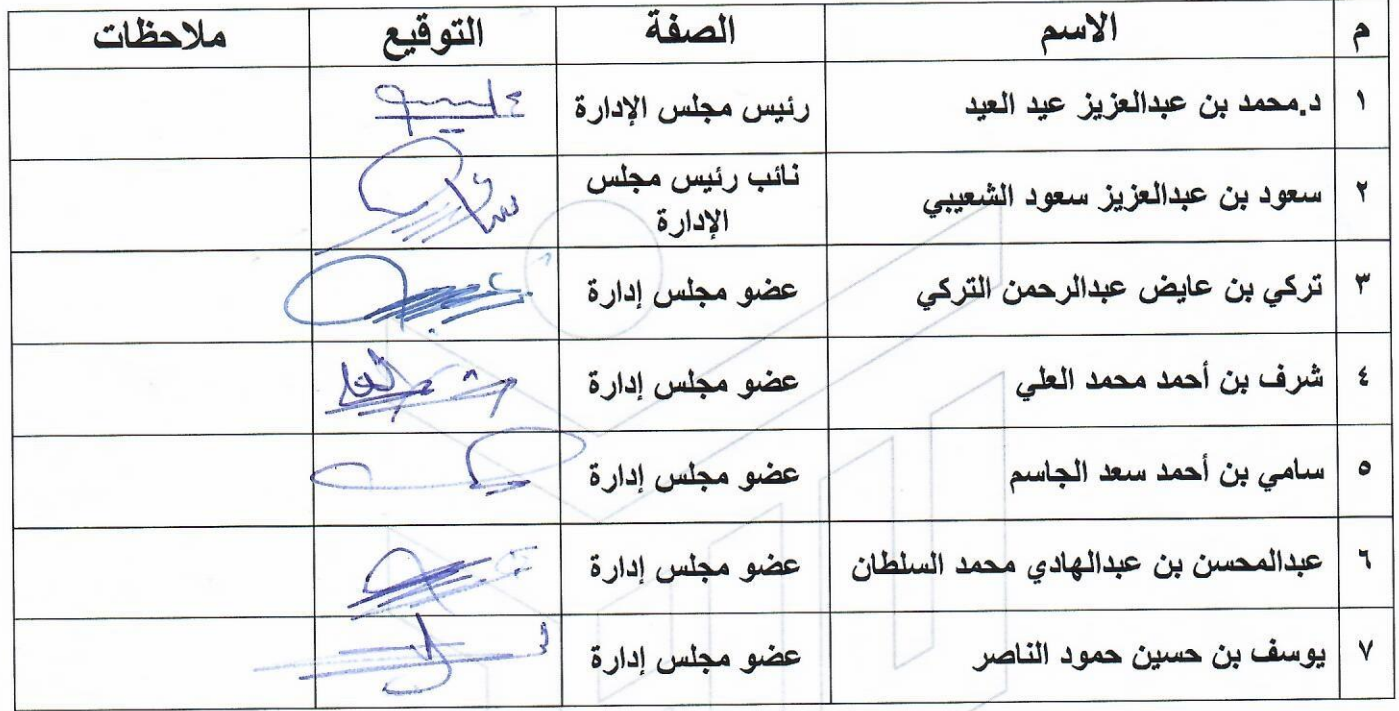 م الاسم الصفة التوقيع ملاحظات
١ د.محمد بن عبدالعزيز عيد العيد رئيس مجلس الإدارة
٢ سعود بن عبدالعزيز سعود الشعيبي نائب رئيس مجلس
الإدارة
٣ تركي بن عايض عبدالرحمن التركي عضو مجلس إدارة
٤ شرف بن أحمد محمد العلي عضو مجلس إدارة
٥ سامي بن أحمد سعد الجاسم عضو مجلس إدارة
٦ عبدالمحسن بن عبدالهادي محمد السلطان عضو مجلس إدارة
٧ يوسف بن حسين حمود الناصر عضو مجلس إدارة